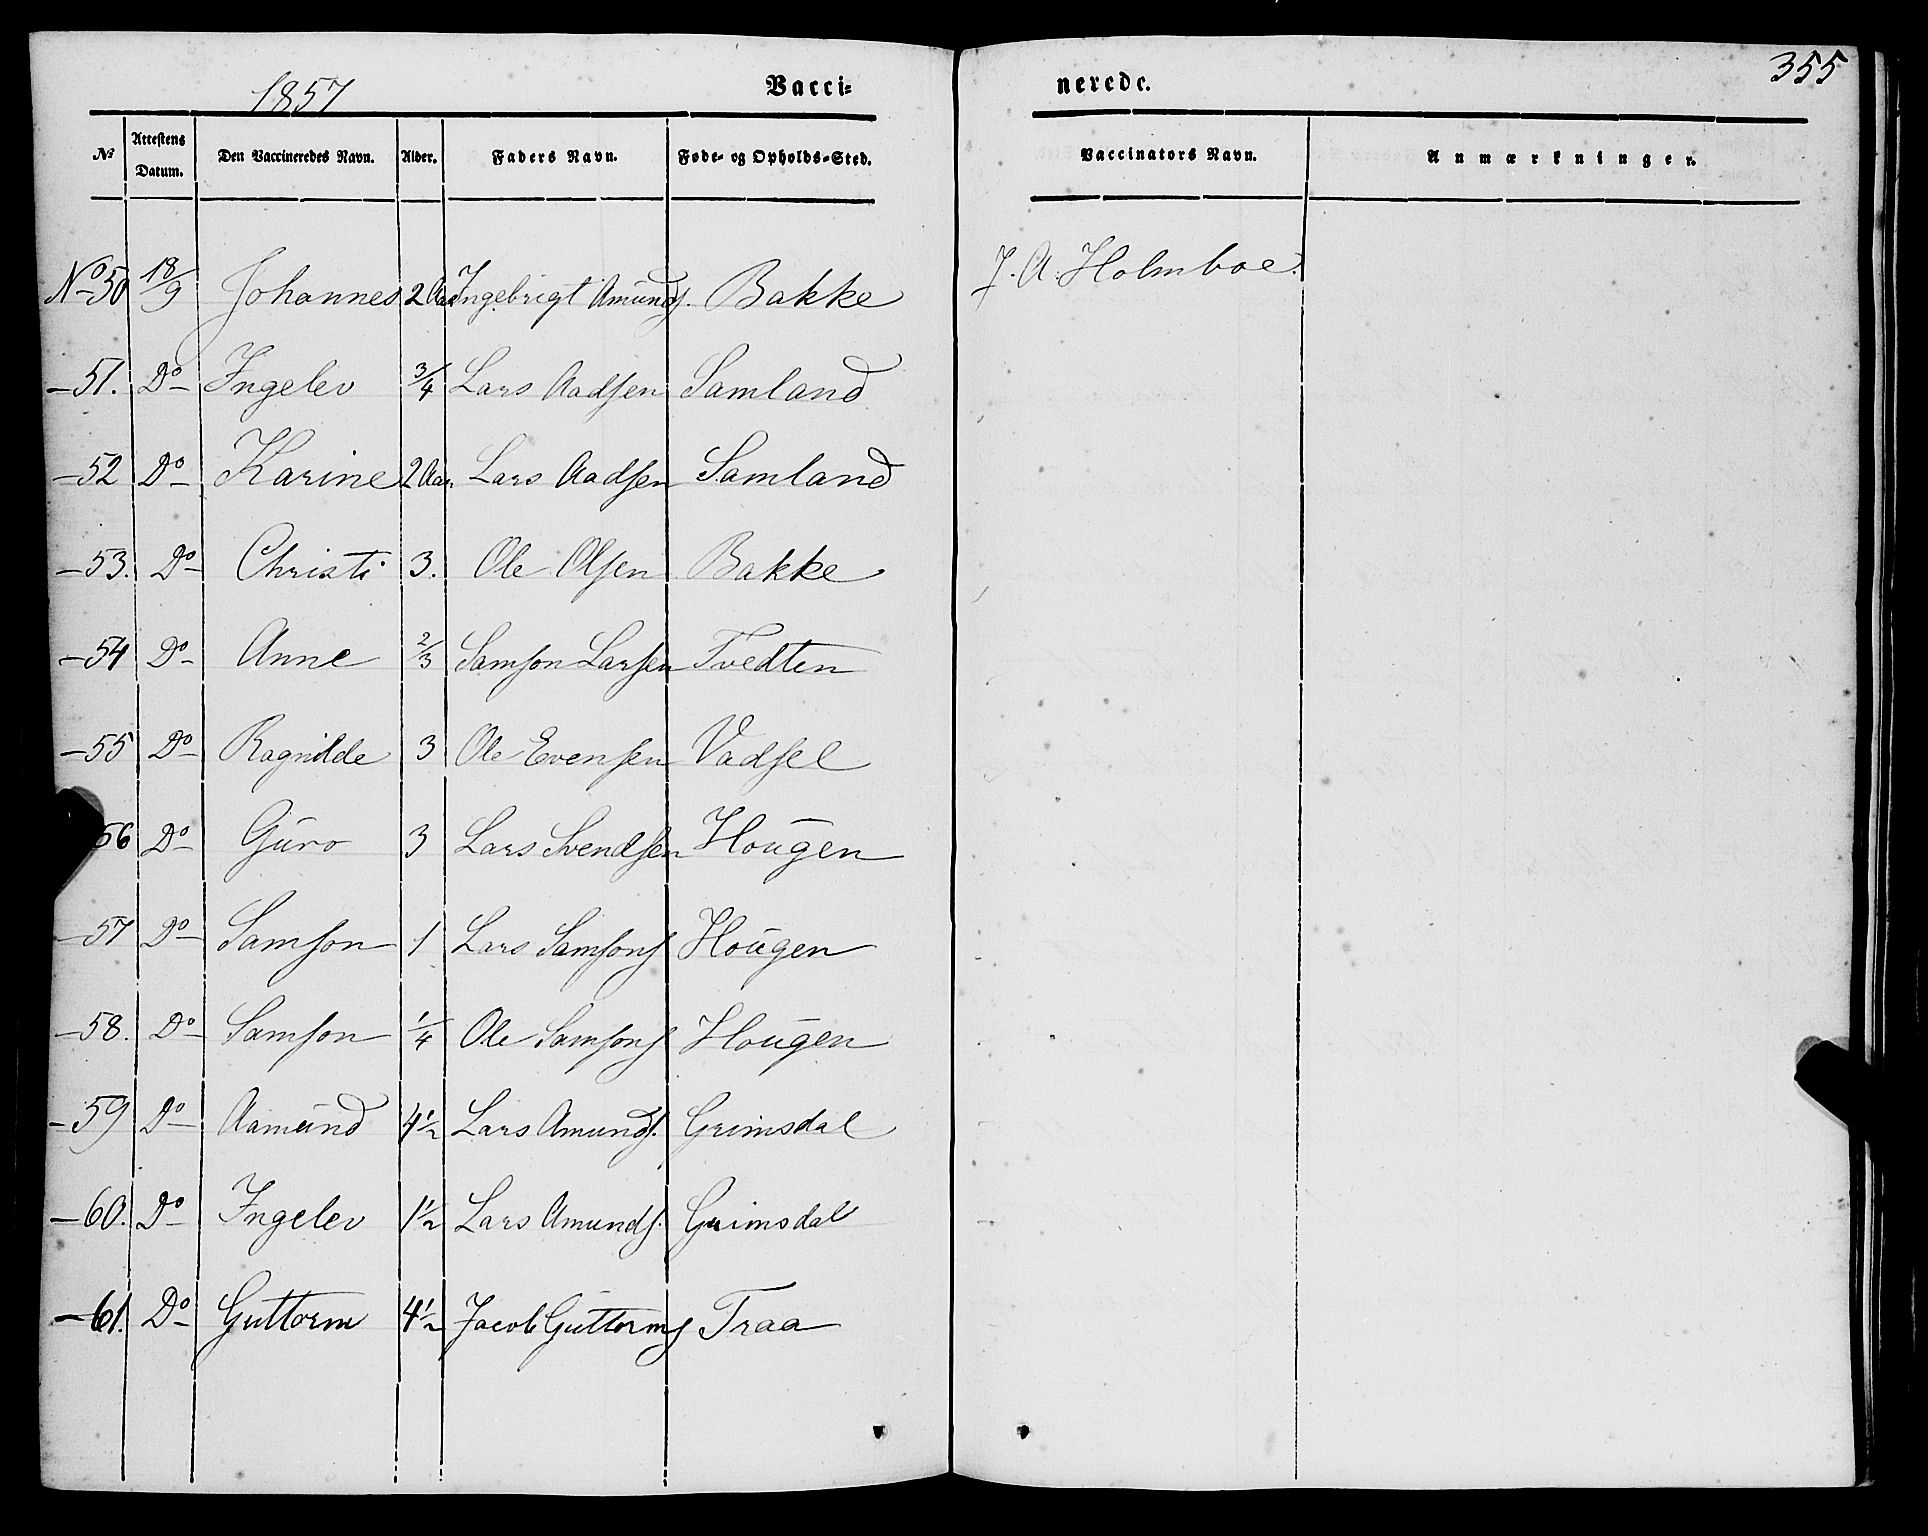 355
1857 Vacci= nerede.
№ Attestens Datum. Den Vaccineredes Navn. Alder. Faders Navn. Føde- og Opholds-Sted. Vaccinators Navn. Anmærkninger.
No 50 18/9 Johannes 2 Aar Ingebrigt Amunds. Bakke J. A. Holmboe.
— 51. Do Ingelev 3/4 Lars Aadsen Samland
— 52 Do Karine 2 Aar Lars Aadsen Samland
— 53. Do Christi 3. Ole Olsen Bakke
— 54 Do Anne 2/3 Samson Larsen Tvedten
— 55 Do Ragnilde 3 Ole Evensen Vadsel
56 Do Guro 3 Lars Svendsen Hougen
— 57 Do Samson 1 Lars Samsons Hougen
— 58. Do Samson 1/4 Ole Samsons Hougen
— 59 Do Aamund 4 1/2 Lars Amunds. Grimsdal
— 60. Do Ingelev 1 1/2 Lars Amunds. Grimsdal
— 61. Do Guttorm 4 1/2 Jacob Guttorms Traa